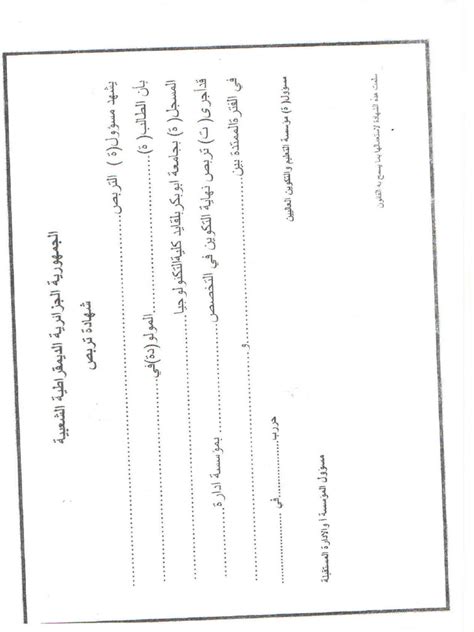 الجمهورية الجزائرية الديمقراطية الشعبية
شهادة تربص
يشهد مسؤول(ة ) التربص....................................................................
بأن الطالب( ة)....................................المولو(دة)في..............................
المسجل( ة) بجامعة ابوبكربلقايد كليةالتكنولوجيا....................................................
قداجرى(ت) تربص نهاية التكوين في التخصص........................ بمؤسسة ادارة..............
في الفترةالممتدة بين................................و...........................................
حررب...............في ..............
مسؤول(ة) مؤسسة التعليم والتكوين العاليين
مسؤول المؤسسة أ والادارة المستقبلة
سلمت هذه الشهادة لاستعمالها بما يسمح به القانون